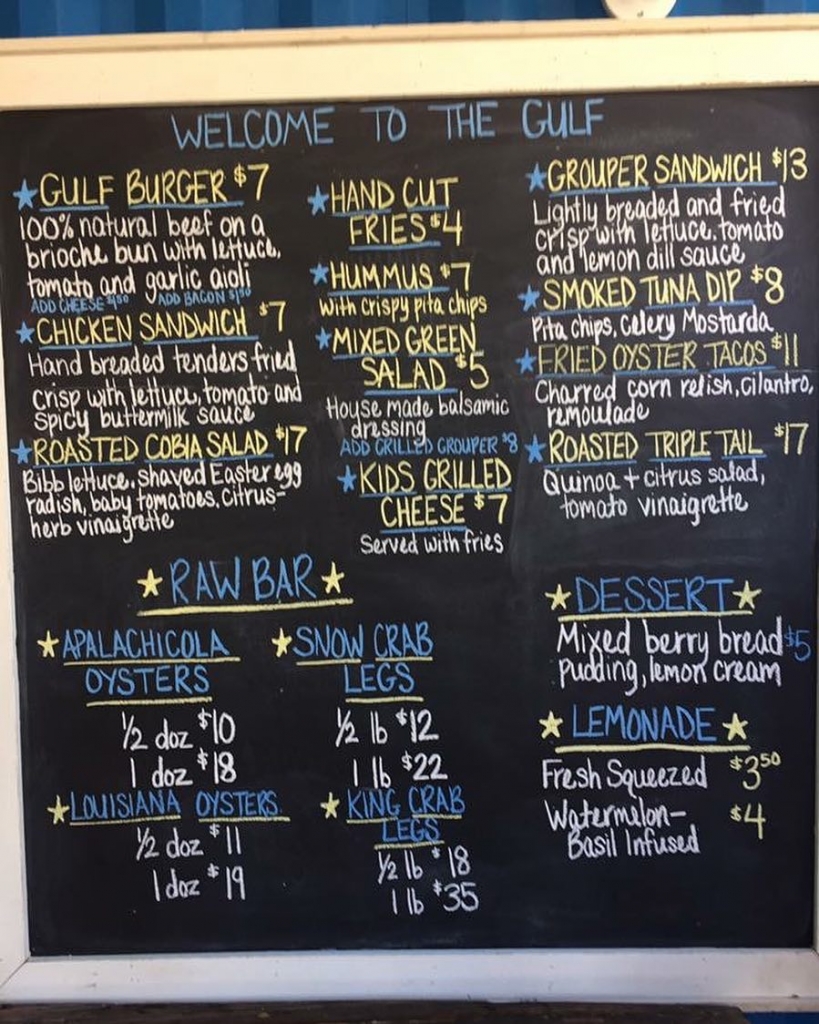 WELCOME TO THE GULF
GULF BURGER $7
100% natural beef on a
brioche bun with lettuce,
tomato and garlic aioli
ADD CHEESE $1.50 ADD BACON $1.50
CHICKEN SANDWICH $7
Hand breaded tenders fried
crisp with lettuce, tomato and
spicy buttermilk sauce
ROASTED COBIA SALAD $17
Bibb lettuce, shaved Easter egg
radish, baby tomatoes, citrus-
herb vinaigrette
HAND CUT
FRIES $4
HUMMUS $7
with crispy pita chips
MIXED GREEN
SALAD $5
House made balsamic
dressing
ADD GRILLED GROUPER $8
KIDS GRILLED
CHEESE $7
Served with fries
GROUPER SANDWICH $13
Lightly breaded and fried
crisp with lettuce, tomato
and lemon dill sauce
SMOKED TUNA DIP $8
Pita chips, Celery Mostarda
FRIED OYSTER TACOS $11
Charred corn relish, cilantro,
remoulade
ROASTED TRIPLE TAIL $17
Quinoa + citrus salad,
tomato vinaigrette
RAW BAR
APALACHICOLA
OYSTERS
1/2 doz $10
1 doz $18
LOUISIANA OYSTERS
1/2 doz $11
1 doz $19
SNOW CRAB
LEGS
1/2 lb $12
1 lb $22
KING CRAB
LEGS
1/2 lb $18
1 lb $35
DESSERT
Mixed berry bread $5
pudding, lemon cream
LEMONADE
Fresh Squeezed $3.50
Watermelon- $4
Basil Infused